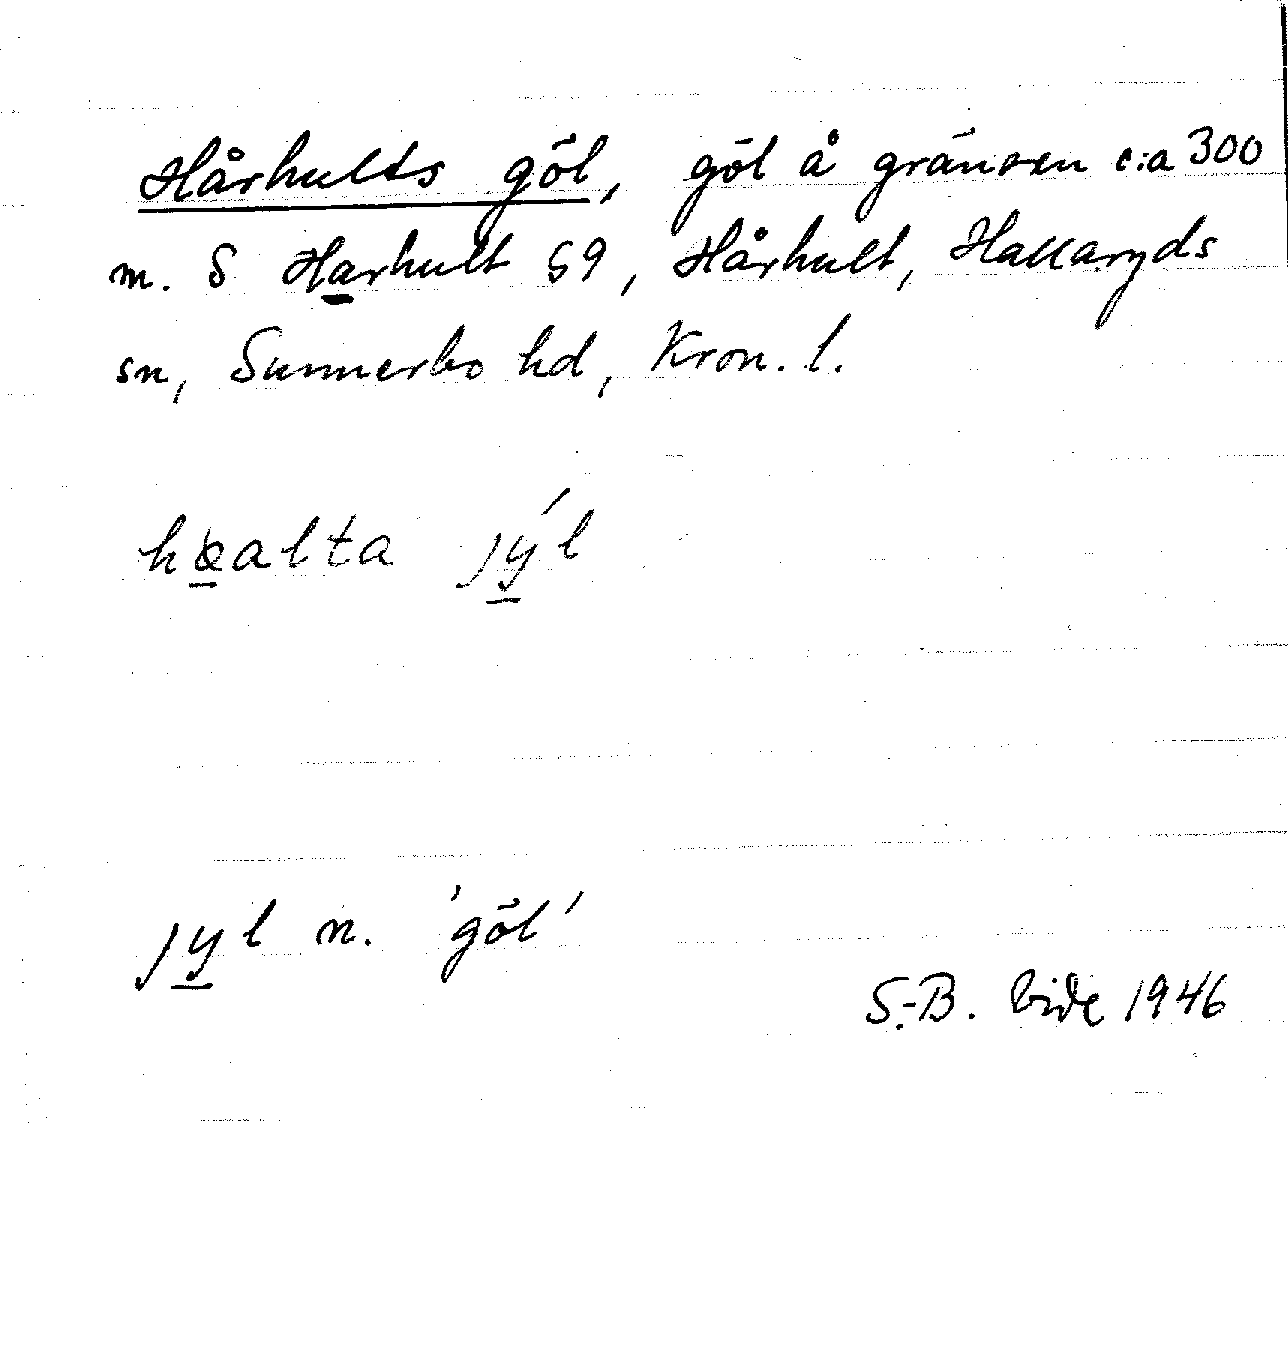 Hårhults göl, göl å gränsen c:a 300
m. S Harhult 59, Hårhult, Hallaryds
sn, Sunnerbo hd, Kron. l.
alta jýl
jyl n. 'göl'
S.-B. Vide 1946